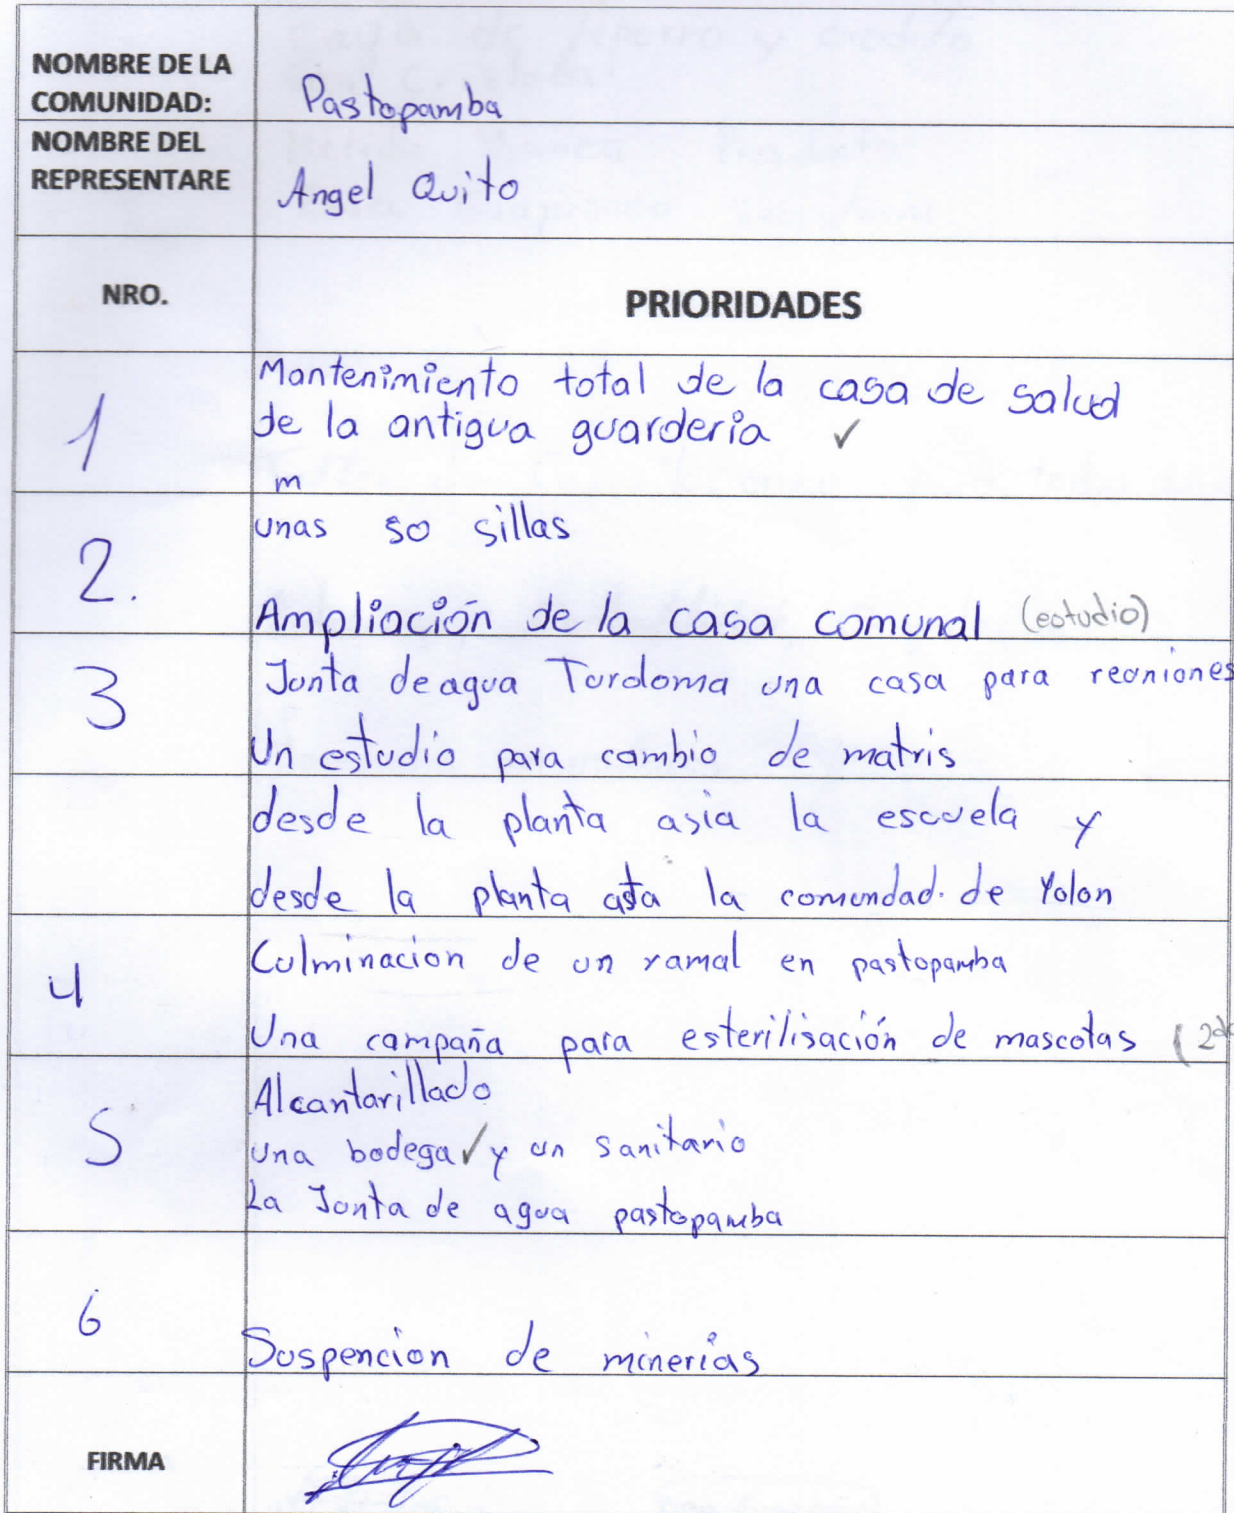 NOMBRE DE LA COMUNIDAD: Pastopamba
NOMBRE DEL REPRESENTARE Angel Quito
NRO. PRIORIDADES
1 Mantenimiento total de la casa de salud
de la antigua guarderia ✓
m
2. unas 50 sillas
Ampliación de la casa comunal (estudio)
3 Junta de agua Turoloma una casa para reuniones
Un estudio para cambio de matris
desde la planta asia la escuela y
desde la planta asta la comundad. de Yolon
4 Culminacion de un ramal en pastopamba
Una campaña para esterilisación de mascotas (2do
5 Alcantarillado
una bodega ✓ y un sanitario
La Junta de agua pastopamba
6 Suspencion de minerias
FIRMA